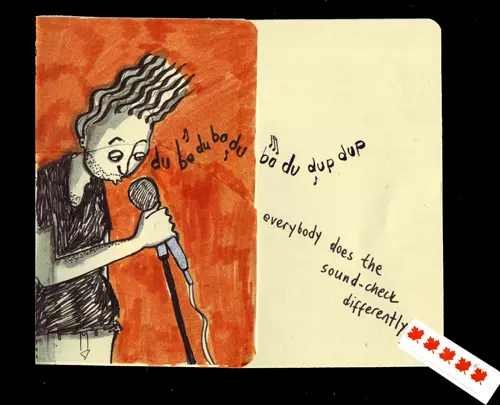 du ba du ba du ba du dup dup
everybody does the
sound-check
differently